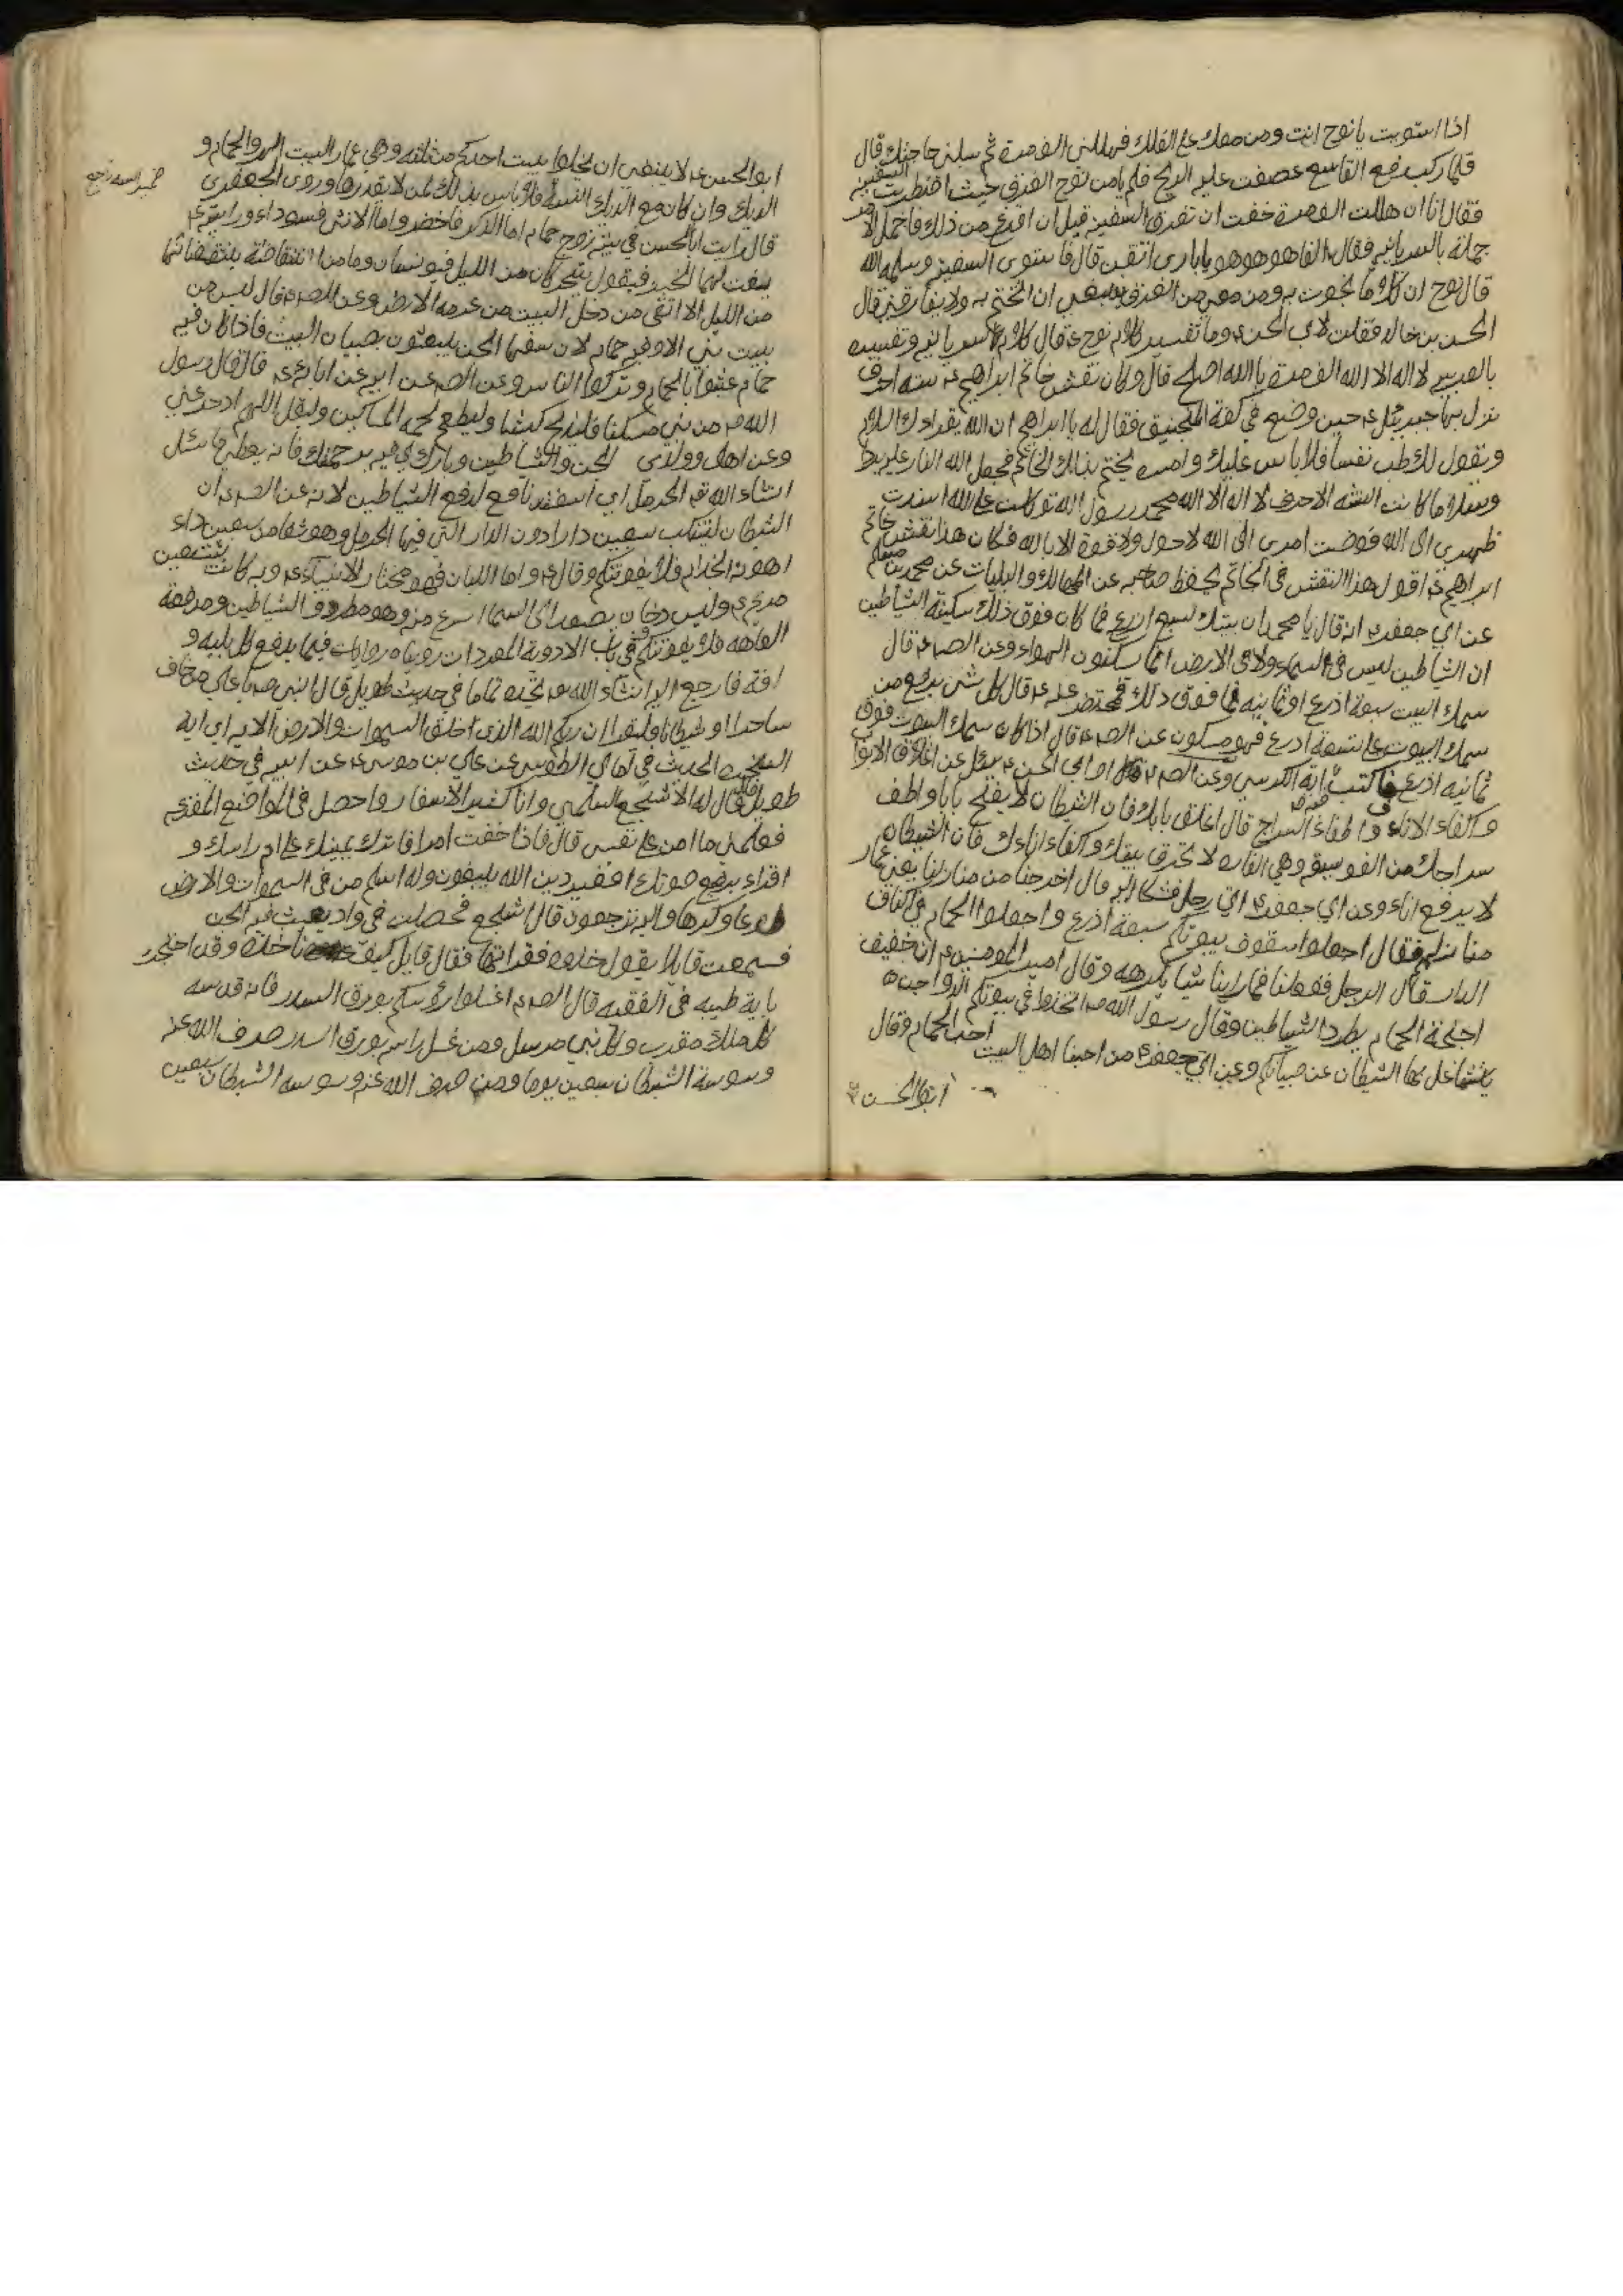 اذا استويت يا نوح انت ومن معك على الفلك فهللني الف مرة ثم سلني حاجتك قال
فلما ركب رفع القلس عصفت عليه الريح فلم يامن نوح الغرق حيث اضطربت السفينة
فقال انا ان هللت الف مرة خفت ان تغرق السفينة قبل ان افرغ من ذلك فاجمل الامر
جملة بالسريانية فقال الفا هو هو هو يا باري اتقن قال فاستوى السفينة وسلمه الله
قال نوح ان كلاما نجوت به ومن معي من الغرق ينبغي ان اتختم به ولا يفارقني قال
الحسن بن خالد فقلت لابي الحسن ع وما تفسير كلام نوح ع قال كلام بالسريانية وتفسيره
بالعربية لا اله الا الله الف مرة يا الله اصلح قال وكان نقش خاتم ابراهيم ع ستة احرف
نزل بها جبرئيل ع حين وضع في كفة المنجنيق فقال له يا ابراهيم ان الله يقراءك السلام
ويقول لك طب نفسا فلا باس عليك وامره يختم بذلك الخاتم فجعل الله النار عليه بردا
وسلاما كانت الستة الاحرف لا اله الا الله محمد رسول الله توكلت على الله اسندت
ظهري الى الله فوضت امري الى الله لا حول ولا قوة الا بالله فكان هذا نقش خاتم
ابراهيم ع اقول هذا النقش في الخاتم يحفظ صاحبه عن المهالك والبليات عن محمد بن مسلم
عن ابي جعفر ع انه قال يا محمد ابن بيتك سبع اذرع فما كان فوق ذلك سكنه الشياطين
ان الشياطين ليس في السماء ولا في الارض انما يسكنون الهواء وعن الص ع قال
سمك البيت سبعة اذرع او ثمانية فما فوق ذلك فمحتضر وعنه ع قال كل شئ يرفع من
سمك البيوت على تسعة اذرع فهو مسكون عن الص ع قال اذا كان سمك البيوت فوق
ثمانية اذرع فاكتب فيه اية الكرسي وعن الص ع او ابي الحسن ع سئل عن اغلاق الابواب
واكفاء الاناء واطفاء السراج قال اغلق بابك فان الشيطان لا يفتح بابا واطف
سراجك من الفويسقة وهي الفارة لا تحرق بيتك واكفاء اناءك فان الشيطان
لا يرفع اناء وعن ابي جعفر ع اتي رجل فشكا اليه قال اخرجنا من منازلنا يعني عمار
منازلهم فقال اجعلوا سقوف بيوتكم سبعة اذرع واجعلوا الحمام في اكناف
الدار قال الرجل ففعلنا فما راينا شيئا نكرهه وقال امير المومنين ع ان خفيف
اجنحة الحمام يطرد الشياطين وقال رسول الله ص اتخذوا في بيوتكم الدواجن
يتشاغل بها الشيطان عن صبيانكم وعن ابي جعفر ع من احبنا اهل البيت احب الحمام وقال
ابو الحسن ع
ابو الحسن ع لا ينبغي ان يخلوا بيت احدكم من ثلثة وهي عمار البيت الهر والحمام و
الديك وان كان مع الديك انيسة فلا باس بذلك لمن لا يقدرها وروى الجعفري
قال رايت ابا الحسن في بيته زوج حمام اما الذكر فاخضر واما الانثى فسوداء ورايته ع
يفت لهما الخبز فيقول يتحركان من الليل فيونسان وما من انتقاضة ينتقضانها
من الليل الا اتقى من دخل البيت من عرمة الارض وعن الص ع قال ليس من
بيت نبي الا وفيه حمام لان سفهاء الجن يلعبون بصبيان البيت فاذا كان فيه
حمام عبثوا بالحمام وتركوا الناس وعن الص عن ابيه عن ابائه ع قال قال رسول
الله ص من بنى مسكنا فليذبح كبشا وليطعم لحمه المساكين وليقل اللهم ادحر عني
وعن اهلي وولدي الجن والشياطين وبارك لي فيه برحمتك فانه يعطى ما سئل
انشاء الله تع الحرمل اي اسفند نافع لدفع الشياطين لانه عن الص ع ان
الشيطان ليتنكب سبعين دارا دون الدار التي فيها الحرمل وهو شفا من سبعين داء
اهونه الجذام فلا يفوتنكم وقال ع واما اللبان فهو مختار الانبياء ع وبه كانت تستعين
مريم ع وليس دخان يصعد الى السماء اسرع منه وهو مطردة الشياطين ومدفعة
العاهة فلا يفوتنكم في باب الادوية المفردات روايات فيما يدفع كل بلية و
افة فارجع اليه انشاء الله تع تجده تماما في حديث طويل قال النبي ص يا علي من خاف
ساحرا او شيطانا فليقرا ان ربكم الله الذي خلق السموات والارض الاية اي اية
السخرة الحديث في امالي الطوسي عن علي بن موسى ع عن ابيه في حديث
طويل قال له الاشجع السلمي وانا كثير الاسفار واحصل في المواضع المفزعة
فعلمني ما امن على نفسي قال فاذا خفت امرا فاترك يمينك على ام راسك و
اقراء برفع صوتك افغير دين الله يبغون وله اسلم من في السموات والارض
طوعا وكرها واليه ترجعون قال اشجع فحصلت في واد يعبث فيه الجن
فسمعت قائلا يقول خذوه فقراتها فقال قايل كيف ناخذه وقد احتجز
باية طيبة في الفقيه قال الص ع اغسلوا رؤسكم بورق السدر فانه قدسه
كل ملك مقرب وكل نبي مرسل ومن غسل راسه بورق السدر صرف الله عنه
وسوسة الشيطان سبعين يوما ومن صرف الله عنه وسوسة الشيطان سبعين